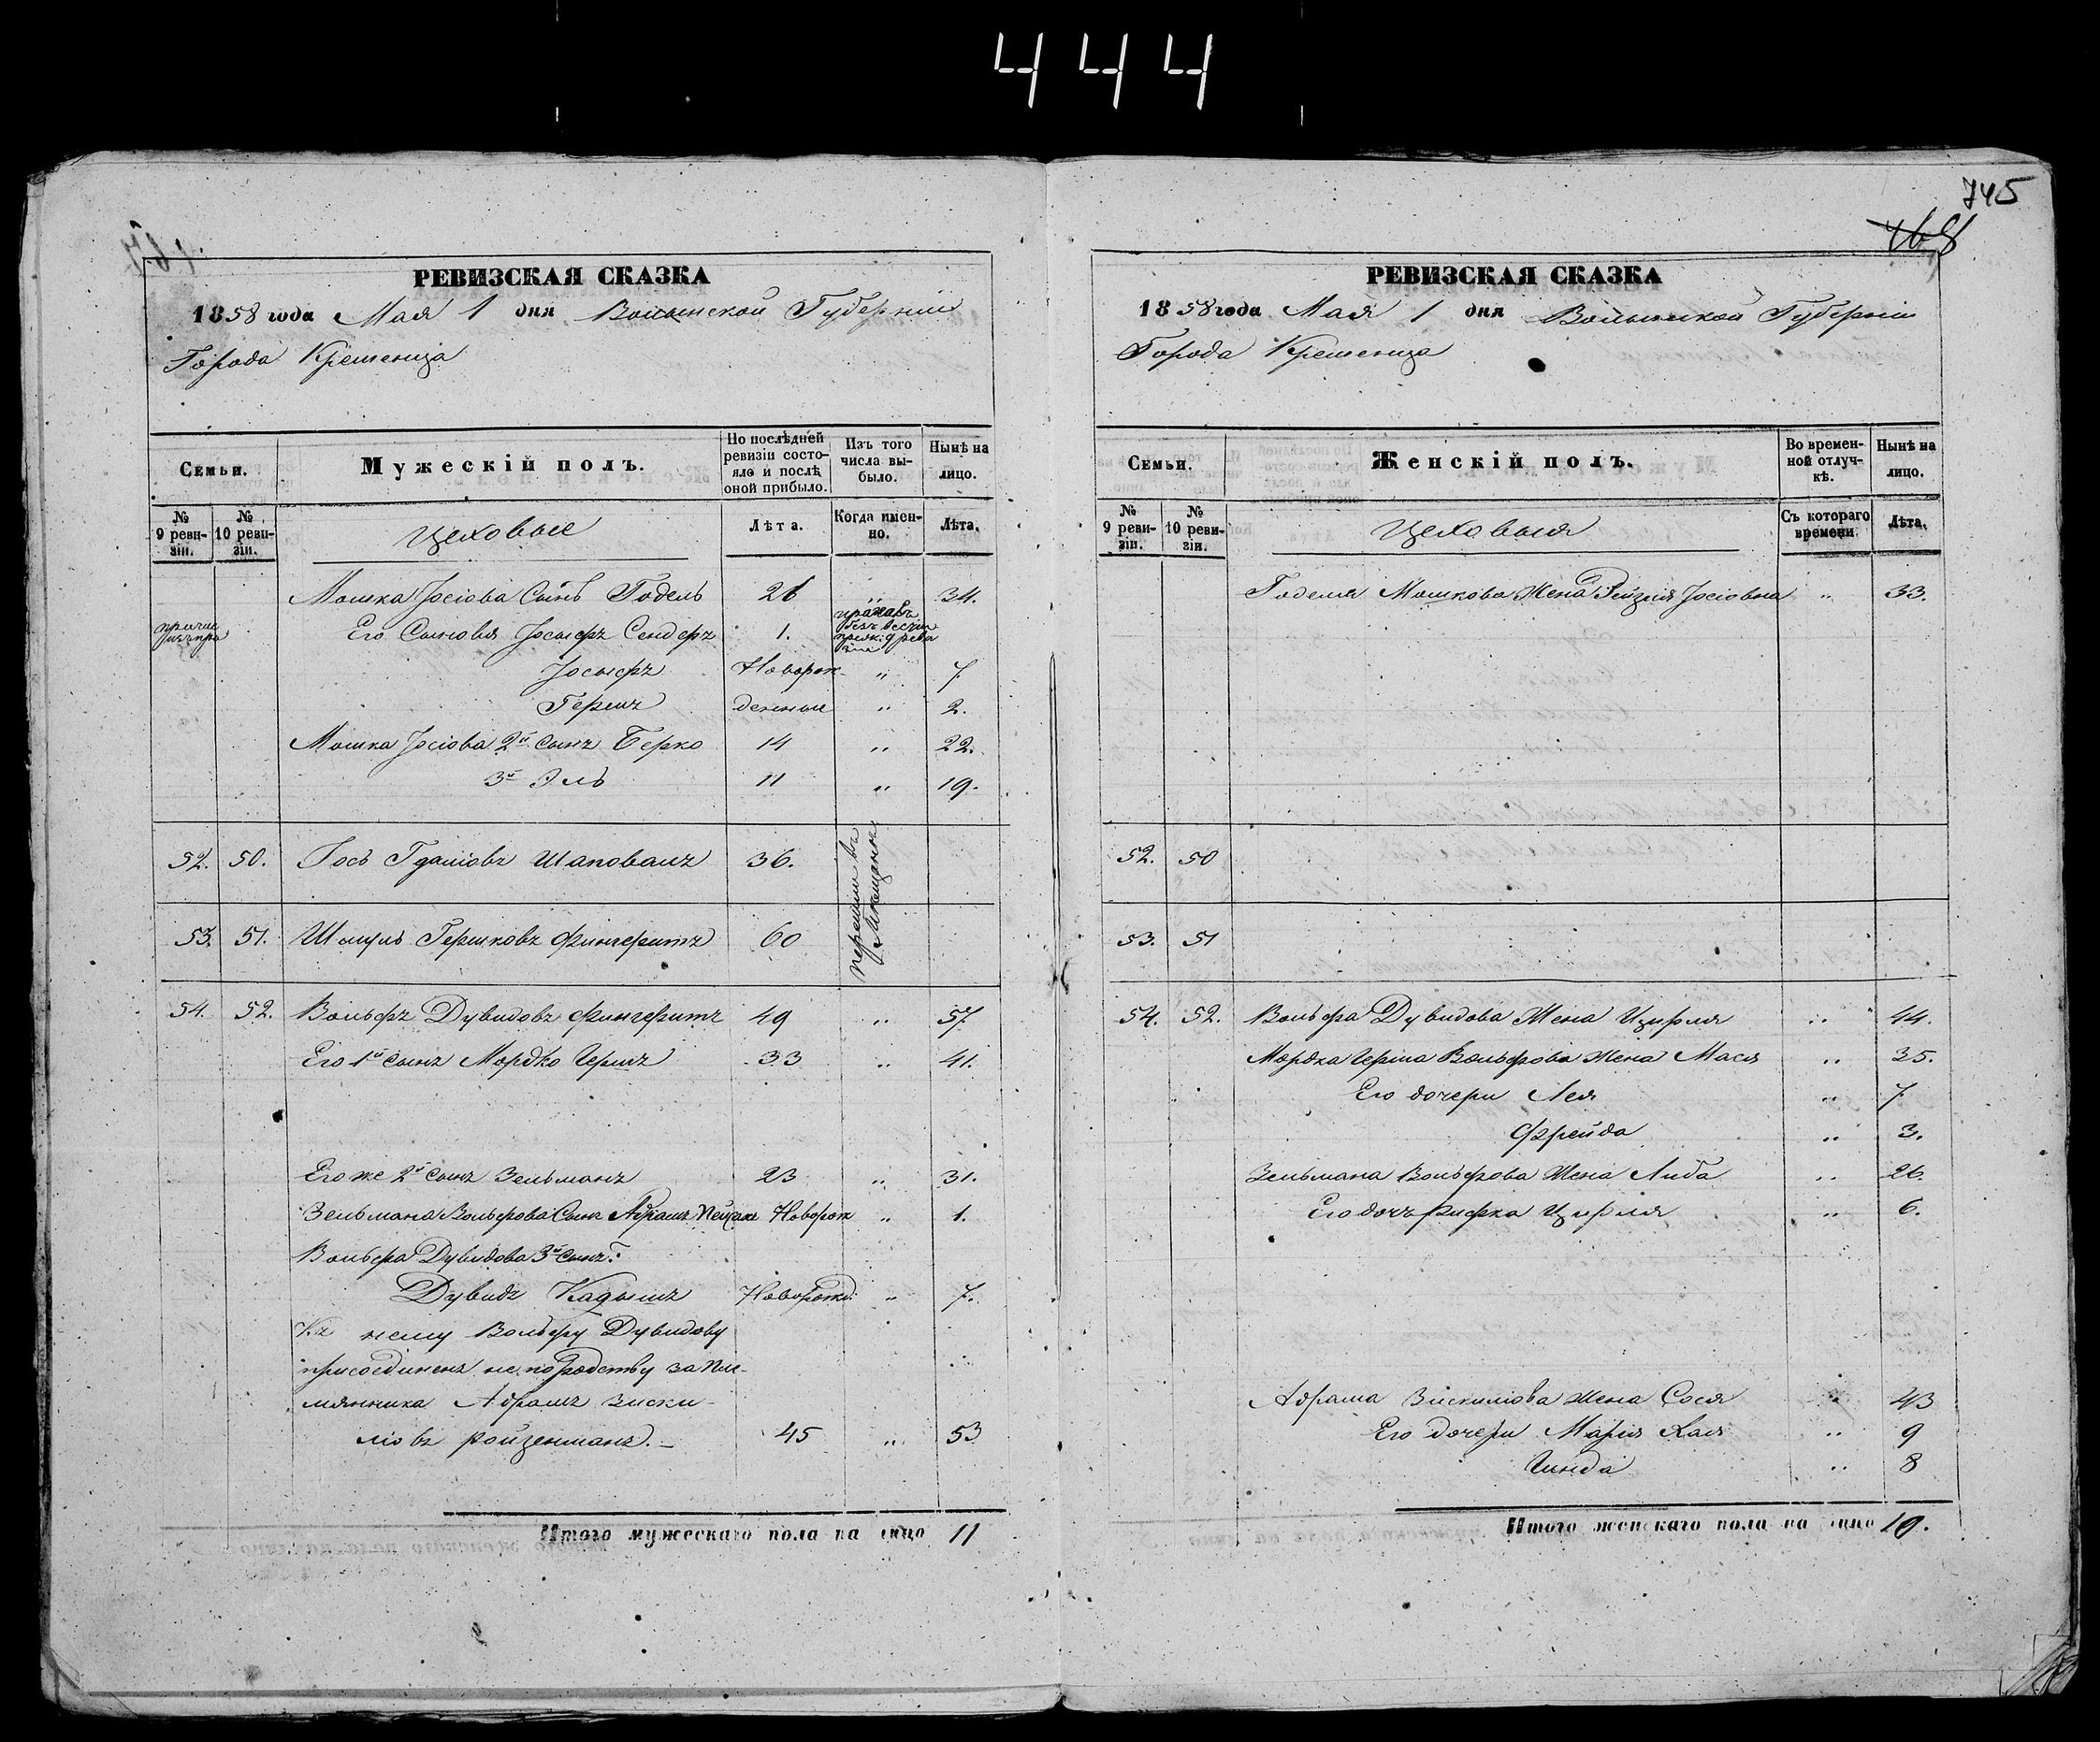 444
745
468
РЕВИЗСКАЯ СКАЗКА
1858 года Мая 1 дня Волынской Губерніи
Города Кременца
Семьи.
Мужескій полъ.
По послѣдней ревизіи состояло и послѣ оной прибыло.
Изъ того числа выбыло.
Нынѣ на лицо.
№ 9 ревизіи.
№ 10 ревизіи.
Цеховые
Лѣта.
Когда именно.
Лѣта.
Мошка Іосіова Сынъ Годель 26 " 34.
Его Сыновья Іосьфъ Сендеръ 1.
Іосьфъ Новорож- " 7
Гершъ денные " 2.
Мошка Іосіова 2й сынъ Берко 14 " 22.
3й Эль 11 " 19.
52. 50. Іось Гдаліовъ Шаповалъ 36.
перешли въ Мещане
53. 51. Шмуль Гершковъ Фингерутъ 60
54. 52. Вольфъ Дувидовъ Фингерутъ 49 " 57.
Его 1й сынъ Мордко Гершъ 33 " 41.
Его же 2й сынъ Зельманъ 23 " 31.
Зельмана Вольфова Сынъ Абрамъ Новорож " 1.
Вольфа Дувидова 3й сынъ
Дувидъ Кадышъ Новорожд. " 7.
Къ нему Вольфу Дувидову
присоединенъ не по родству за пле-
мянника Абрамъ Зиски-
ліовъ Ройзенманъ. 45 " 53
Итого мужескаго пола на лицо 11
РЕВИЗСКАЯ СКАЗКА
1858 года Мая 1 дня Волынской Губерніи
Города Кременца
Семьи.
Женскій полъ.
Во временной отлучкѣ.
Нынѣ на лицо.
№ 9 ревизіи.
№ 10 ревизіи.
Цеховыя
Съ котораго времени
Лѣта.
Годеля Мошкова Жена Рейзля Іосіовна " 33.
52. 50
53. 51
54. 52. Вольфа Дувидова Жена Цирля " 44.
Мордка Герша Вольфова Жена Мася " 35.
Его дочери Лея " 7
Фрейда " 3.
Зельмана Вольфова Жена Либа " 26.
Его дочь Рифка Цирля " 6.
Абрама Зискиліова Жена Сося " 43
Его дочери Марія Хая " 9
Гинда " 8
Итого женскаго пола на лицо 10.